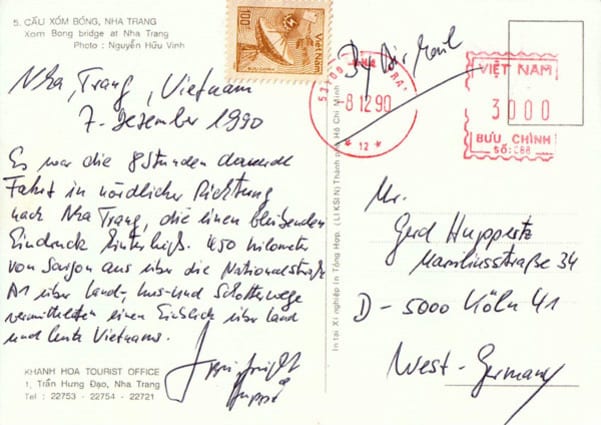 5. CẦU XÓM BÓNG, NHA TRANG
Xom Bong bridge at Nha Trang
Photo : Nguyễn Hữu Vinh
Nha Trang, Vietnam
7. Dezember 1990
Es war die 8 Stunden dauernde
Fahrt in nördlicher Richtung
nach Nha Trang, die einen bleibenden
Eindruck hinterließ. 450 Kilometer
von Saigon aus über die Nationalstraße
A1 über Land-, und Schotterwege
vermittelten einen Einblick über Land
und Leute Vietnams.
KHANH HOA TOURIST OFFICE
1, Trần Hưng Đạo, Nha Trang
Tel : 22753 - 22754 - 22721
100
Việt Nam
BƯU CHÍNH
By Air Mail
-8 12.90
* 12 *
VIỆT NAM
3000
BƯU CHÍNH
SỐ:C88
In tại Xí nghiệp In Tổng Hợp. (LIKSIN) Thành phố Hồ Chí Minh
Mr.
Gerd Huppertz
Manliusstraße 34
D - 5000 Köln 41
West - Germany